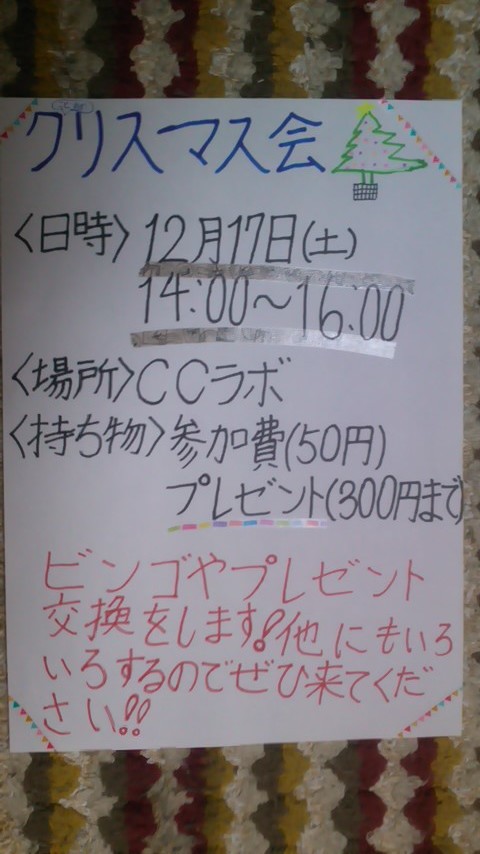 クリスマス会
〈日時〉12月17日(土)
14:00～16:00
〈場所〉CCラボ
〈持ち物〉参加費(50円)
プレゼント(300円まで)
ビンゴやプレゼント
交換をします!他にもいろ
いろするのでぜひ来てくだ
さい!!